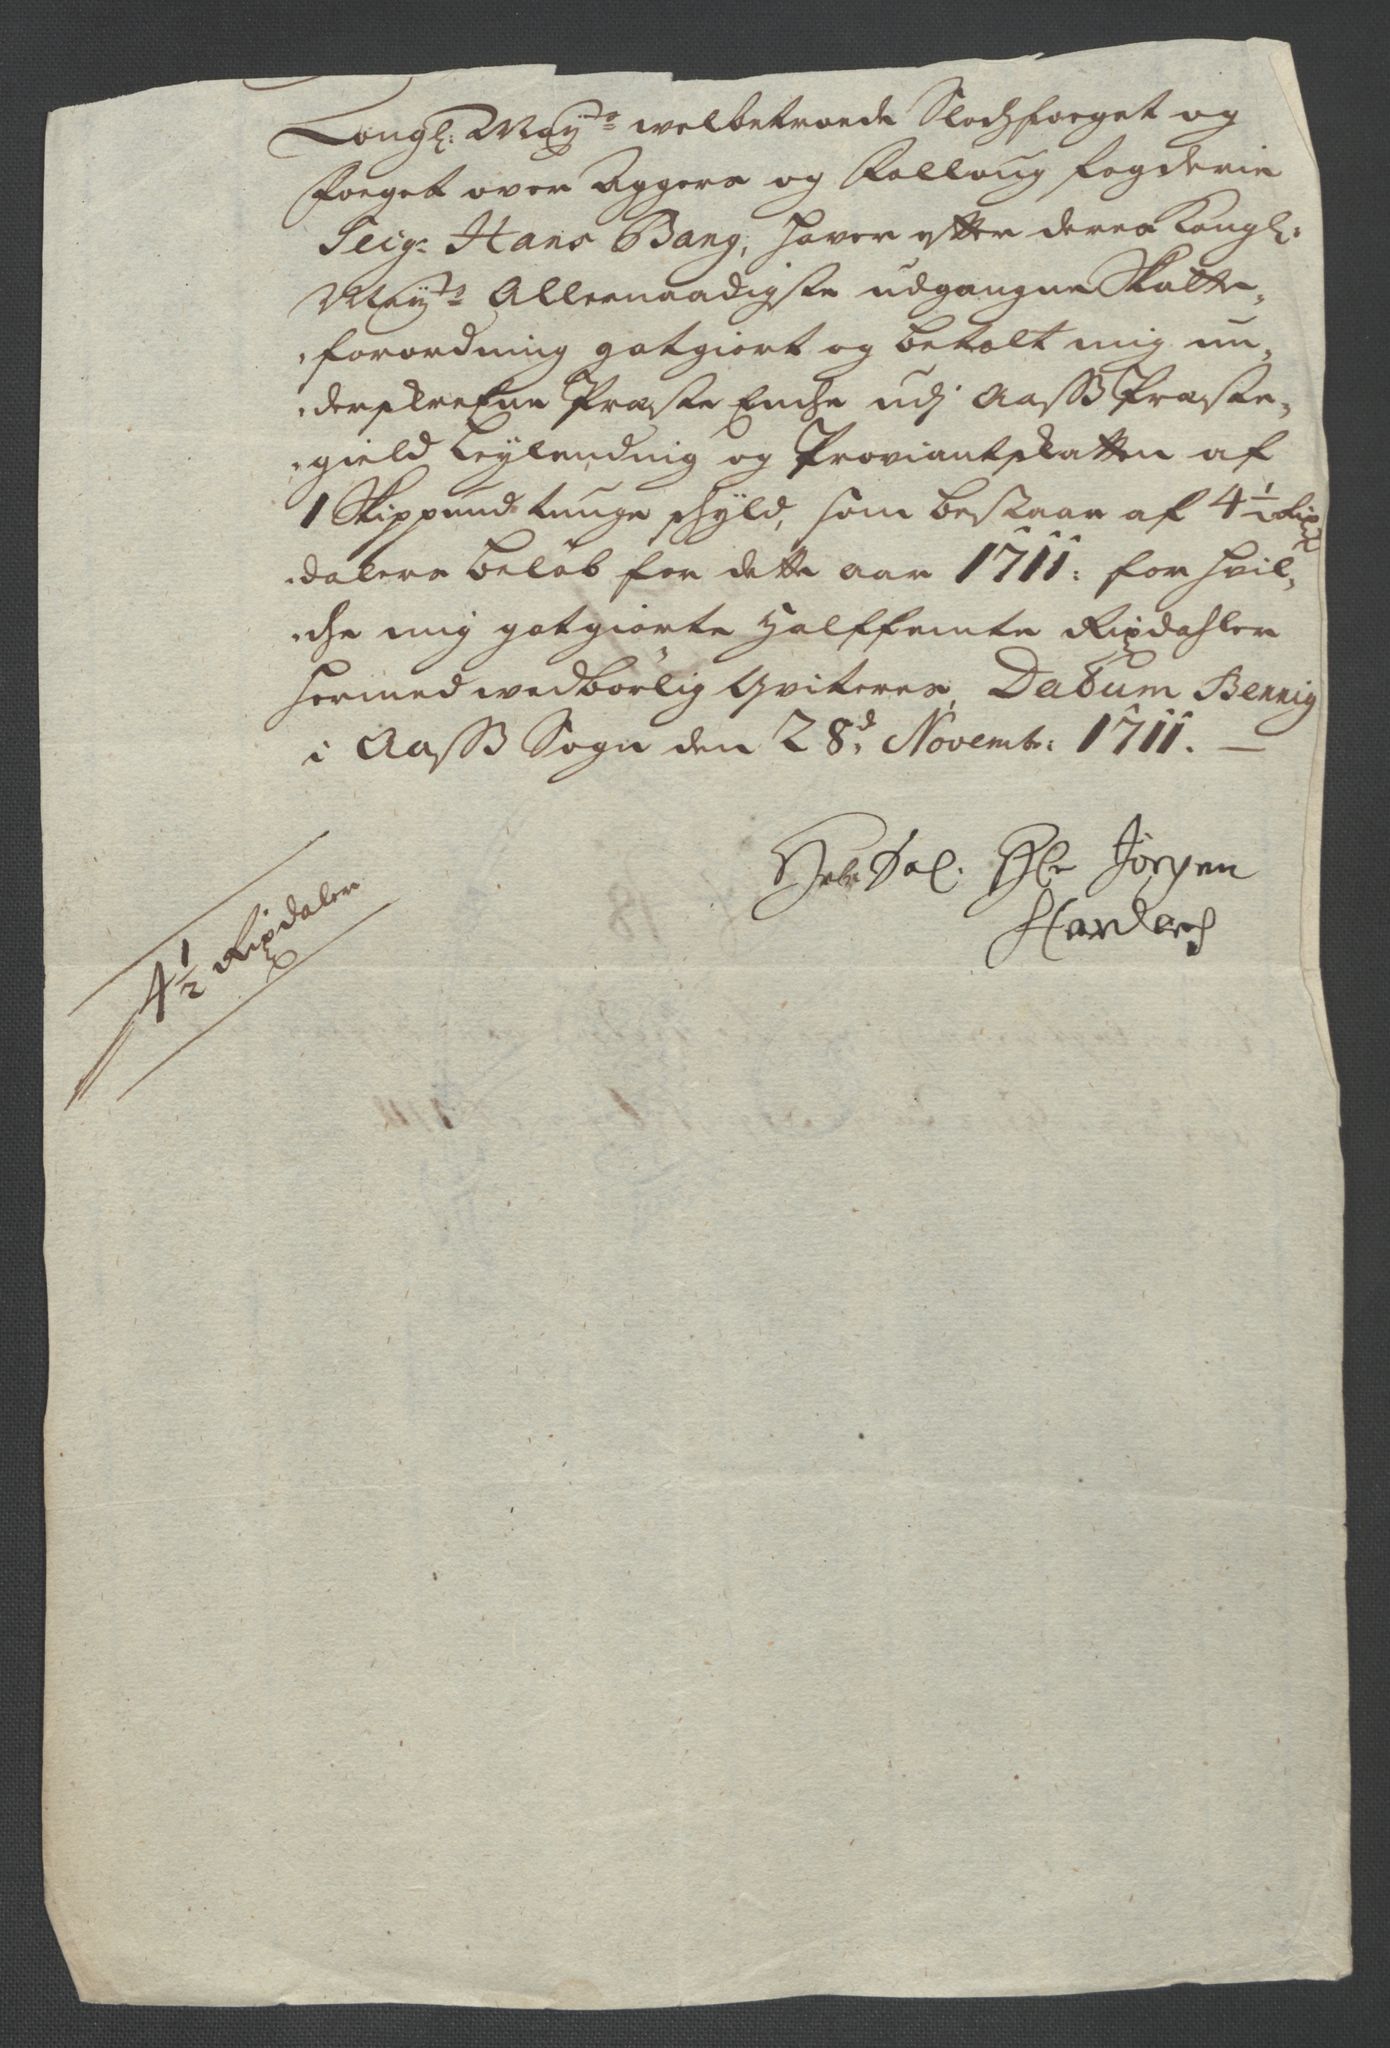 Kongl: May:ts welbetroede Slodzfoeget og
Foeget over Aggers og Folloug fogderie
Seig:r Hans Bang, haver efter deres Kongl:
May:ts Allernaadigste udgangne Skatte,
forordning gotgiort og betalt mig un,
derskrefne Præste Enche udj Aass Præste,
gield Leylending og Proviantskatten af
1 Skippund tunge schyld, som bestaar af 4½ Rix
dalers beløb for dette aar 1711: for hvil,
che mig gotgiorte Halffemte Rixdahler
hermed wedbørlig Qviteres, Datum Bennig
i Aass Sogn den 28:d Novemb: 1711. —
Sl: Jørgen
Harders
4½ Rixdaler